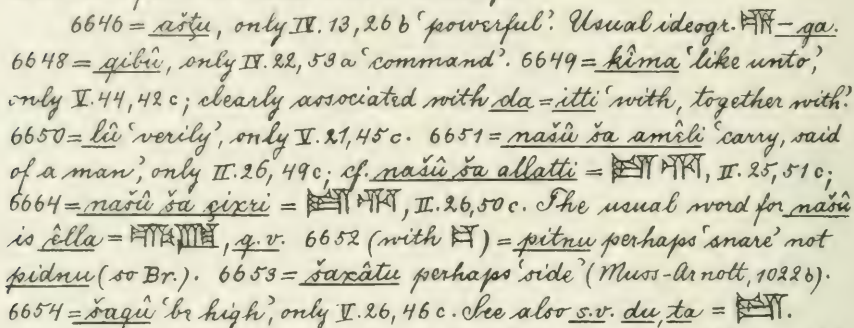 6646 = aštu, only IV. 13, 26 b ‘powerful’. Usual ideogr. – ga.
6648 = qibû, only IV. 22, 53 a ‘command’. 6649 = kîma ‘like unto’,
only V. 44, 42 c; clearly associated with da = itti ‘with, together with’.
6650 = lû ‘verily’, only V. 21, 45 c. 6651 = našû ša amêli ‘carry, said
of a man’, only II. 26, 49 c; cf. našû ša allatti = , II. 25, 51 c;
6664 = našû ša çixri = , II. 26, 50 c. The usual word for našû
is êlla = , q.v. 6652 (with ) = pitnu perhaps ‘snare’ not
pidnu (so Br.). 6653 = šaxâtu perhaps ‘side’ (Muss-Arnott, 1022 b).
6654 = šaqû ‘be high’, only V. 26, 46 c. See also s.v. du, ta = .